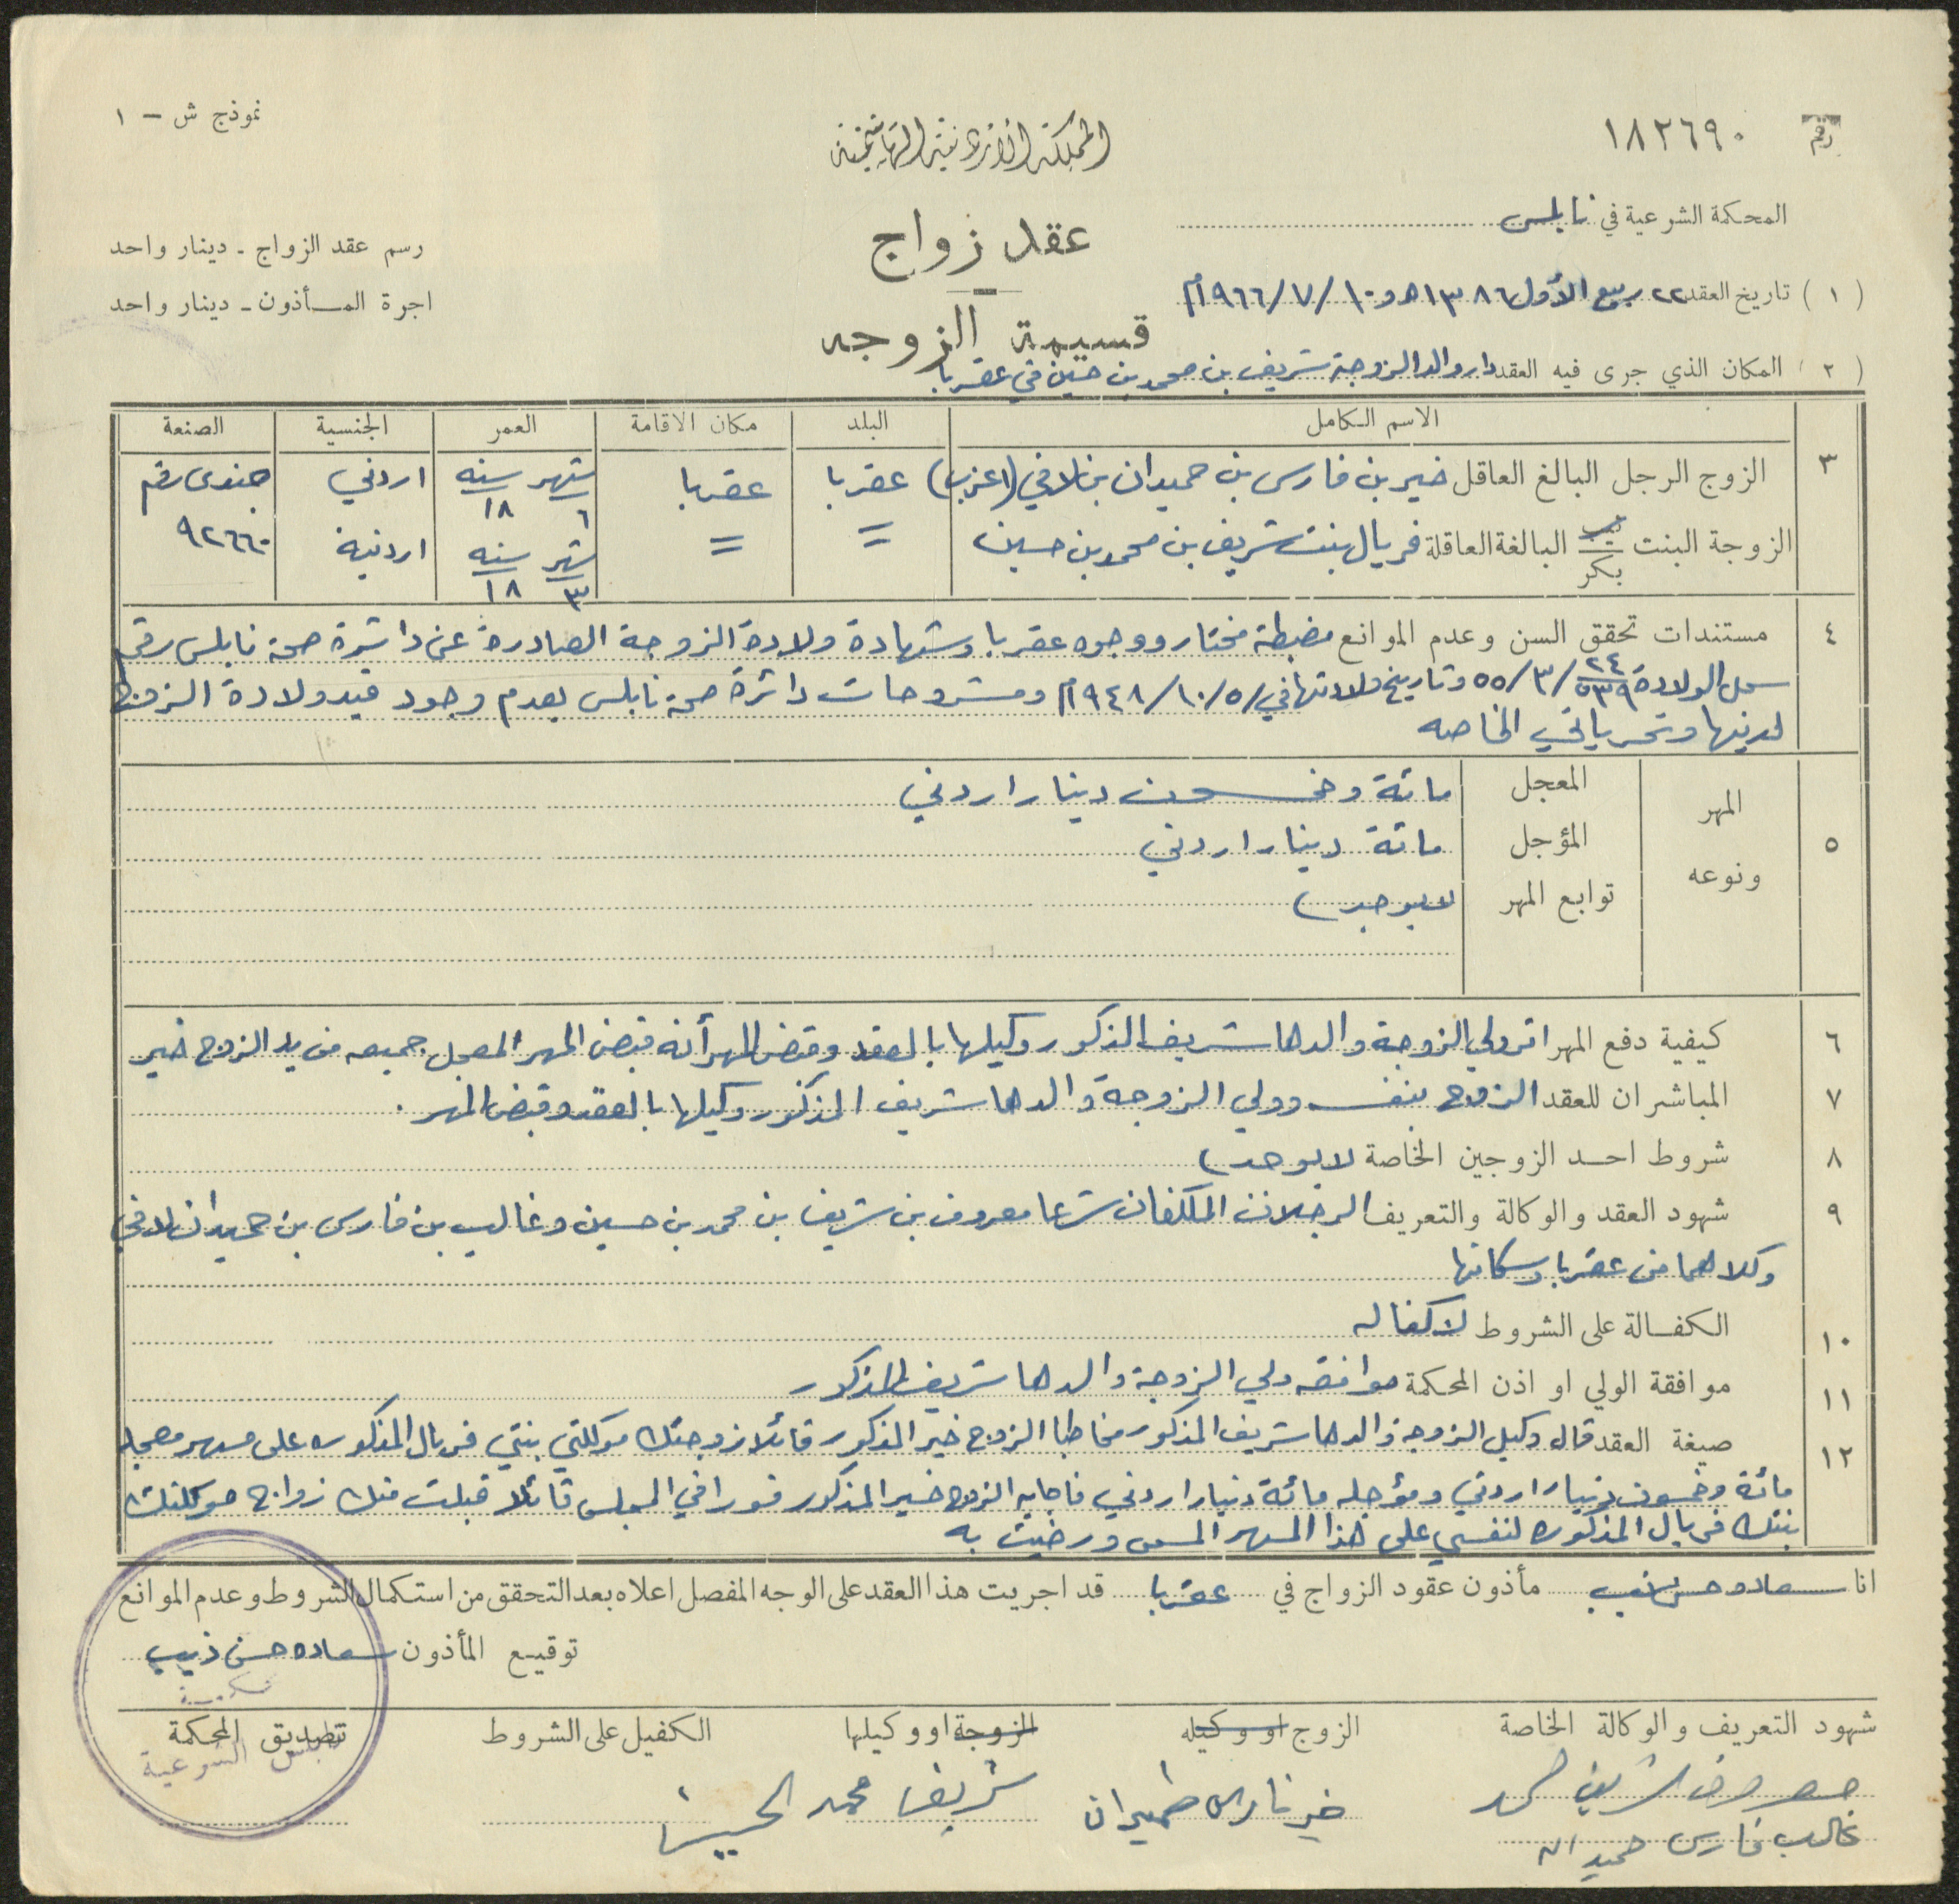 نموذج ش - ١
رقم ١٨٢٦٩٠
المملكة الأردنية الهاشمية
المحكمة الشرعية في نابلس
عقد زواج
رسم عقد الزواج - دينار واحد
(١) تاريخ العقد ٢٢ ربيع الأول ١٣٨٦ه و ١٠/٧/١٩٦٦م
اجرة المأذون - دينار واحد
قسيمة الزوجه
(٢) المكان الذي جرى فيه العقد دار والد الزوجة شريف بن محمد بن حسين في عقربا
الاسم الكامل البلد مكان الاقامة العمر الجنسية الصنعة
٣ الزوج الرجل البالغ العاقل خير بن فارس بن حميدان بن لافي (اعزب) عقربا عقربا شهر ٦ سنه ١٨ اردني جندي رقم ٩٢٦٦٠
الزوجة البنت ثيب بكر البالغة العاقلة فريال بنت شريف بن محمد بن حسين = = شهر ٣ سنه ١٨ اردنية
٤ مستندات تحقق السن وعدم الموانع مضبطة مختار ووجوه عقربا وشهادة ولادة الزوجة الصادرة عن دائرة صحة نابلس رقم
سجل الولادة ٢٤/٥٣٩ /٣/٥٥ وتاريخ ولادتها في ٥/١٠/١٩٤٨م ومشروحات دائرة صحة نابلس بعدم وجود قيد ولادة الزوج
لديها وتحرياتي الخاصه
٥ المهر ونوعه
المعجل مائة وخمسون دينارا اردني
المؤجل مائة دينارا اردني
توابع المهر لا يوجد
٦ كيفية دفع المهر اقر ولي الزوجة والدها شريف المذكور وكيلها بالعقد وقبض المهر أنه قبض المهر المعجل جميعه من يد الزوج خير
٧ المباشران للعقد الزوج بنفسه وولي الزوجة والدها شريف المذكور وكيلها بالعقد وقبض المهر .
٨ شروط احد الزوجين الخاصة لا يوجد
٩ شهود العقد والوكالة والتعريف الرجلان المكلفان شرعا معروف بن شريف بن محمد بن حسين وغالب بن فارس بن حميدان لافي
وكلاهما من عقربا وسكانها
١٠ الكفالة على الشروط لا كفاله
١١ موافقة الولي او اذن المحكمة موافقه ولي الزوجة والدها شريف المذكور
١٢ صيغة العقد قال وكيل الزوجه والدها شريف المذكور مخاطبا الزوج خير المذكور قائلا زوجتك موكلتي بنتي فريال المذكوره على مهر معجله
مائة وخمسون دينارا اردني ومؤجله مائة دينارا اردني فاجابه الزوج خير المذكور فورا في المجلس قائلا قبلت منك زواج موكلتك
بنتك فريال المذكوره لنفسي على هذا المهر المسمى ورضيت به
انا سعاده حسن ذيب مأذون عقود الزواج في عقربا قد اجريت هذا العقد على الوجه المفصل اعلاه بعد التحقق من استكمال الشروط وعدم الموانع
توقيع المأذون سعاده حسن ذيب
شهود التعريف والوكالة الخاصة الزوج او وكيله الزوجة او وكيلها الكفيل على الشروط تصديق المحكمة
معروف شريف محمد
خير فارس حميدان
شريف محمد الحسين
غالب فارس حميدان
نابلس الشرعية